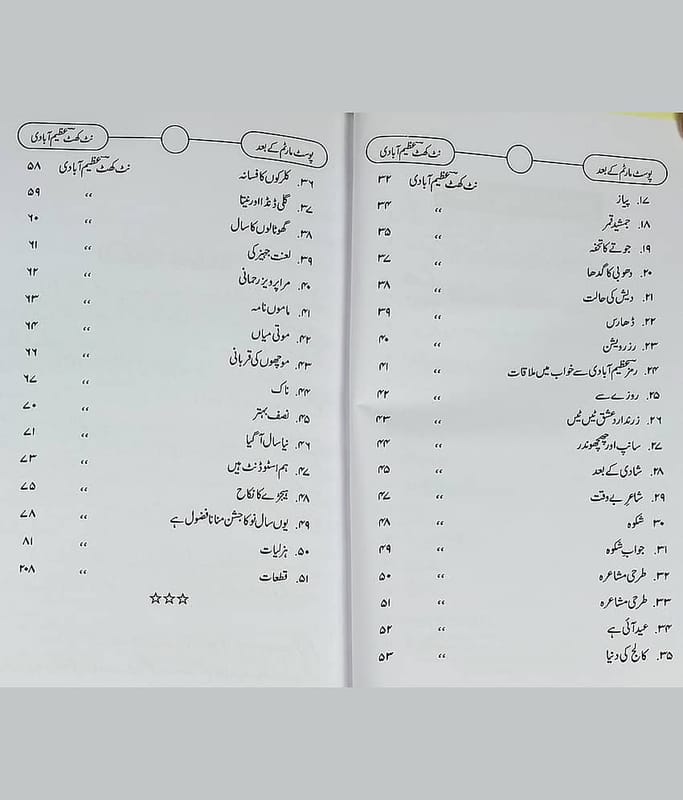 پوسٹ مارٹم کے بعد نٹ کھٹ عظیم آبادی
۱۷۔ پیاز نٹ کھٹ عظیم آبادی ۳۲
۱۸۔ جمشید قمر ،، ۳۴
۱۹۔ جوتے کا تحفہ ،، ۳۵
۲۰۔ دھوبی کا گدھا ،، ۳۷
۲۱۔ دیش کی حالت ،، ۳۸
۲۲۔ ڈھارس ،، ۳۹
۲۳۔ رزرویشن ،، ۴۰
۲۴۔ رمز عظیم آبادی سے خواب میں ملاقات ،، ۴۱
۲۵۔ روزے سے ،، ۴۲
۲۶۔ زرندارد عشق ٹیں ٹیں ،، ۴۳
۲۷۔ سانپ اور چھچھوندر ،، ۴۴
۲۸۔ شادی کے بعد ،، ۴۵
۲۹۔ شاعر بے وقت ،، ۴۷
۳۰۔ شکوہ ،، ۴۸
۳۱۔ جواب شکوہ ،، ۴۹
۳۲۔ طرحی مشاعرہ ،، ۵۰
۳۳۔ طرحی مشاعرہ ،، ۵۱
۳۴۔ عید آئی ہے ،، ۵۲
۳۵۔ کالج کی دنیا ،، ۵۳
پوسٹ مارٹم کے بعد نٹ کھٹ عظیم آبادی
۳۶۔ کلرکوں کا فسانہ نٹ کھٹ عظیم آبادی ۵۸
۳۷۔ گلی ڈنڈا اور نیتا ،، ۵۹
۳۸۔ گھوٹالوں کا سال ،، ۶۰
۳۹۔ لعنت جہیز کی ،، ۶۱
۴۰۔ مرا پرویز رحمانی ،، ۶۲
۴۱۔ ماموں نامہ ،، ۶۳
۴۲۔ موتی میاں ،، ۶۴
۴۳۔ موچھوں کی قربانی ،، ۶۶
۴۴۔ ناک ،، ۶۷
۴۵۔ نصف بہتر ،، ۷۰
۴۶۔ نیا سال آ گیا ،، ۷۱
۴۷۔ ہم اسٹوڈنٹ ہیں ،، ۷۳
۴۸۔ ہیجڑے کا نکاح ،، ۷۵
۴۹۔ یوں سال نو کا جشن منانا فضول ہے ،، ۷۸
۵۰۔ ہزلیات ،، ۸۱
۵۱۔ قطعات ،، ۲۰۸
☆☆☆